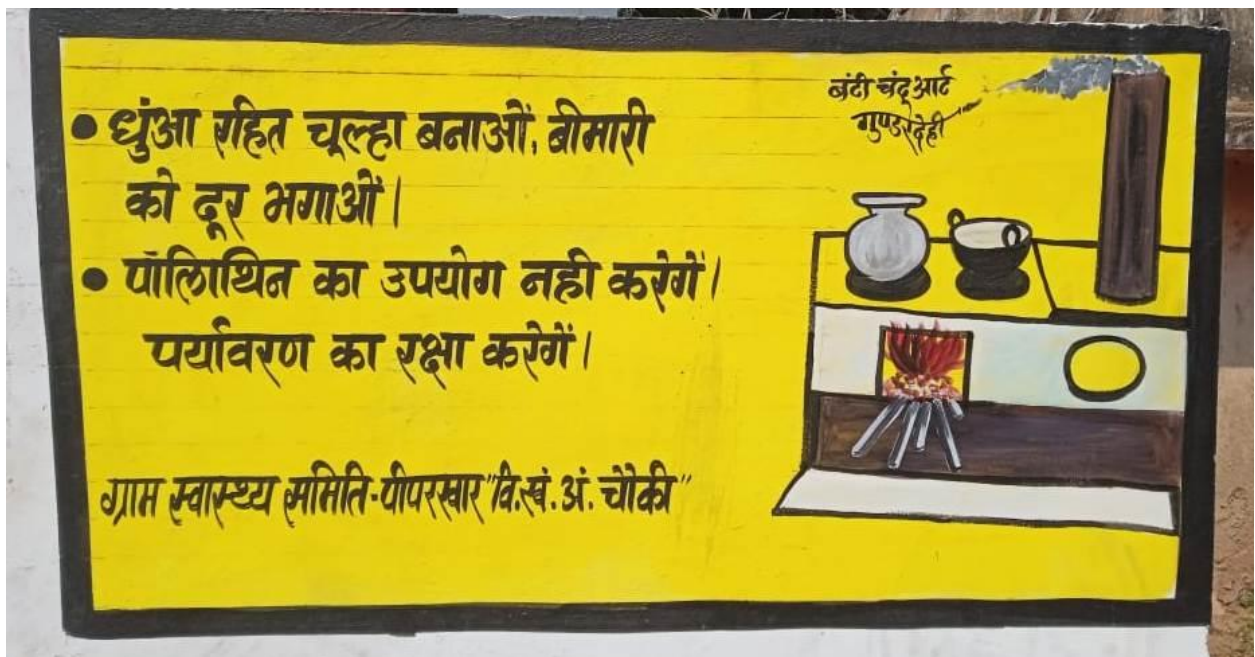 • धुंआ रहित चूल्हा बनाओं, बीमारी
को दूर भगाओं।
• पॉलिथिन का उपयोग नही करेगें।
पर्यावरण का रक्षा करेगें।
ग्राम स्वास्थ्य समिति-पीपरखार "वि.खं.अं. चौकी"
बंटी चंदू आर्ट
गुण्डरदेही